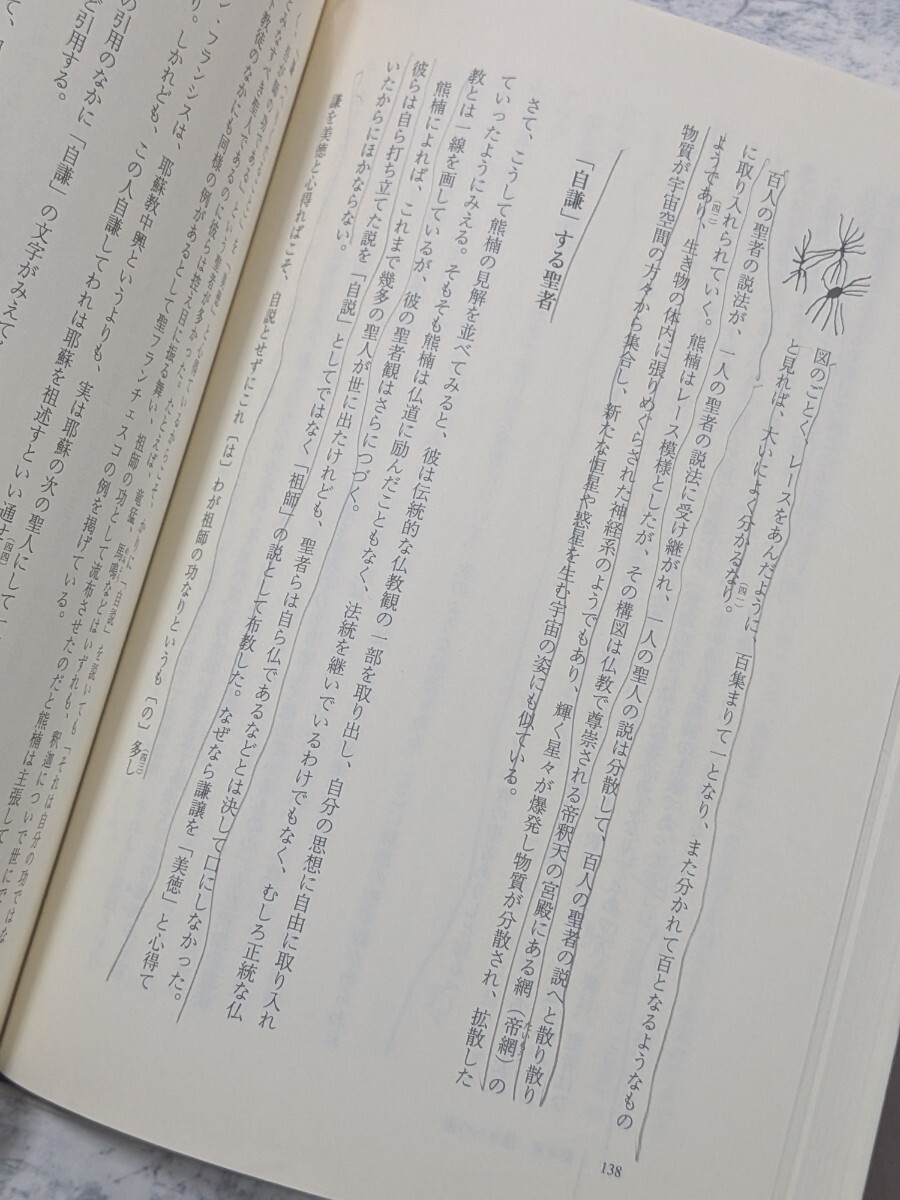 図のごとく、レースをあんだように、百集まりて一となり、また分かれて百となるようなもの
と見れば、大いによく分かるなり。
(四一)
百人の聖者の説法が、一人の聖者の説法に受け継がれ、一人の聖人の説は分散して、百人の聖者の説へと散り散り
に取り入れられていく。熊楠はレース模様としたが、その構図は仏教で尊崇される帝釈天の宮殿にある網(帝網)の
たいもう
ようであり、生き物の体内に張りめぐらされた神経系のようでもあり、輝く星々が爆発し物質が分散され、拡散した
(四二)
物質が宇宙空間の方々から集合し、新たな恒星や惑星を生む宇宙の姿にも似ている。
「自謙」する聖者
さて、こうして熊楠の見解を並べてみると、彼は伝統的な仏教観の一部を取り出し、自分の思想に自由に取り入れ
ていったようにみえる。そもそも熊楠は仏道に励んだこともなく、法統を継いでいるわけでもなく、むしろ正統な仏
教とは一線を画しているが、彼の聖者観はさらにつづく。
熊楠によれば、これまで幾多の聖人が世に出たけれども、聖者らは自ら仏であるなどとは決して口にしなかった。
彼らは自ら打ち立てた説を「自説」としてではなく「祖師」の説として布教した。なぜなら謙譲を「美徳」と心得て
いたからにほかならない。
謙を美徳と心得ればこそ、自説とせずにこれ〔は〕わが祖師の功なりというも〔の〕多し
(四三)
祖師、竜猛、馬鳴などはいずれも、釈迦についで世にで
みなすべき聖人である
教徒のなかにも同様の例があるとして聖フランチェスコの例を掲げている。
ン、フランシスは、耶蘇教中興というよりも、実は耶蘇の次の聖人にして一
り。しかれども、この人自謙してわれは耶蘇を祖述すといい通せ
(四四)
の引用のなかに「自謙」の文字がみえて
ど引用する。
138